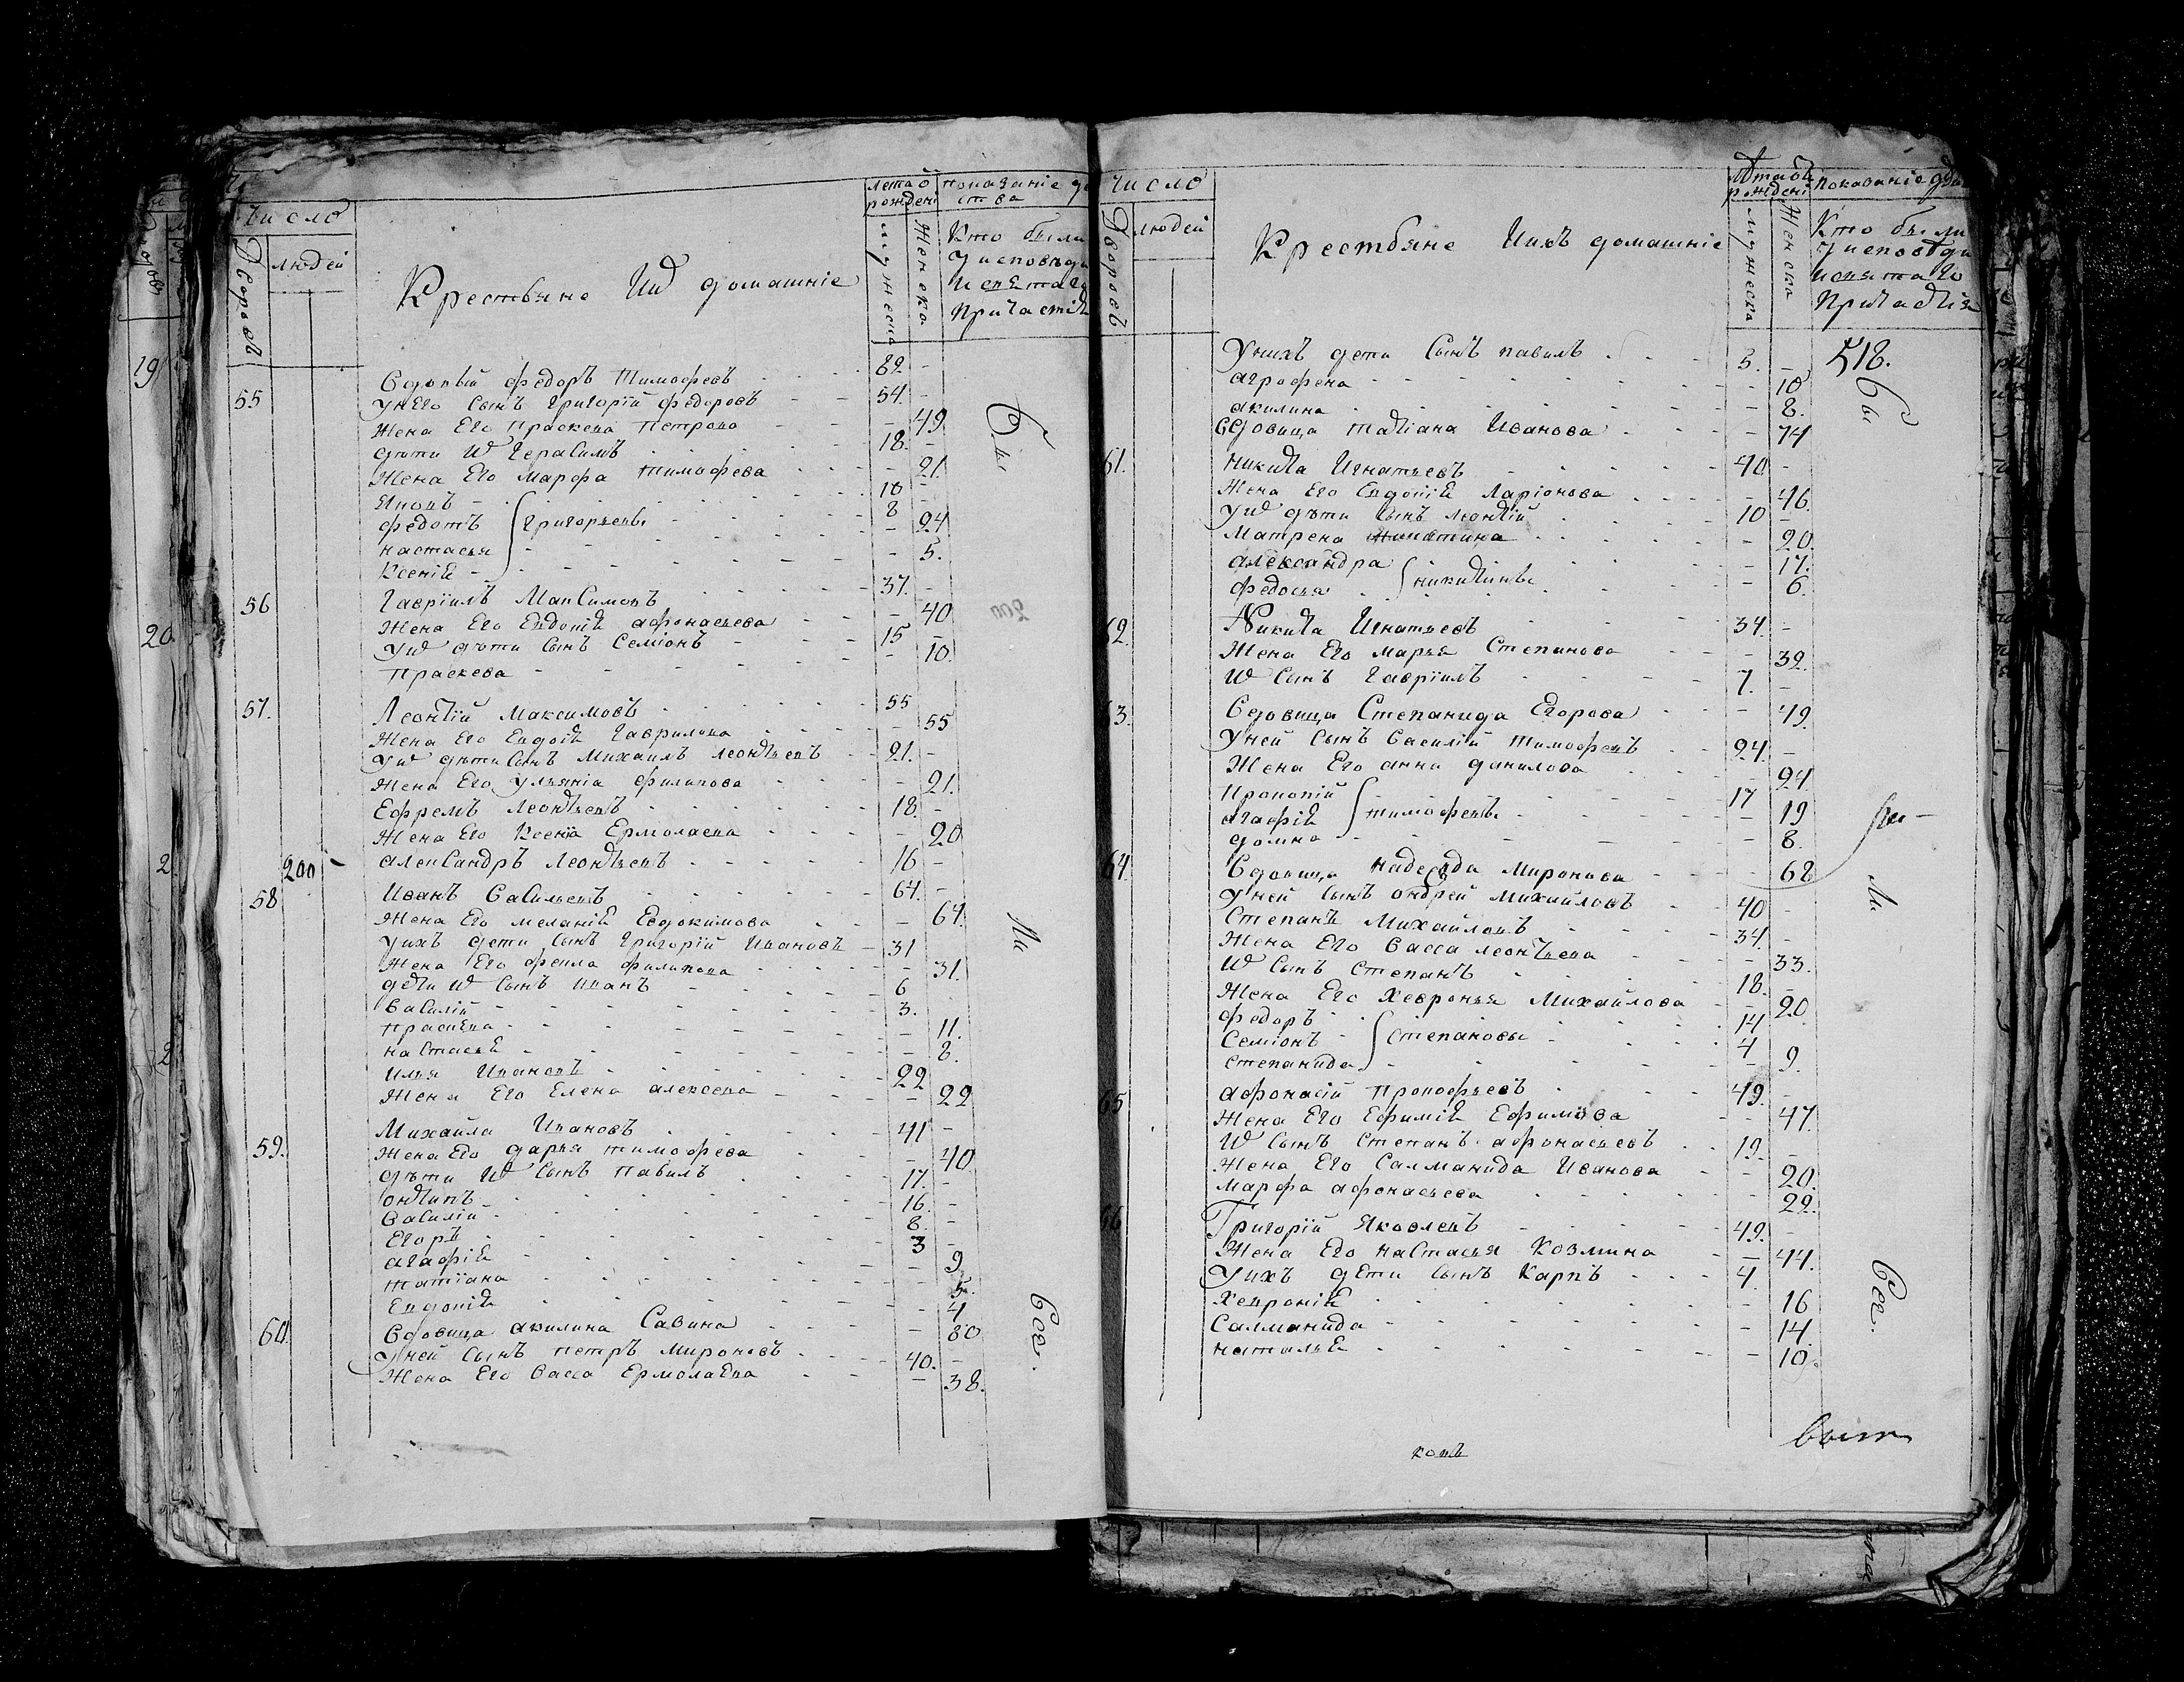 Число
Дворовъ
людей
Крестьяне Ихъ домашніе
лета ѿ рожденi
мужеска
Женска
показаніе де
ства
Кто были
У исповѣди
и святаго
Причастія
55
Вдовый федоръ Тимофеевъ 82
У Него Сынъ Григорій федоровъ 54
Жена Его Праскева Петрова 49
дѣти их Герасимъ 18
Жена Его Марфа тимофеева 21
Яковъ 10
федотъ Григорьевы 8
настасья 24
Ксенія 5
56 Гавріилъ Максимовъ 37
Жена Его Евдокія афонасьева 40
У их дѣти Сынъ Семіонъ 15
Праскева 10
57 Леонтій Максимовъ 55
Жена Его Евдокія Гаврилова 55
У их дѣти Сынъ Михаилъ Леонтьевъ 21
Жена Его Ульянія филипова 21
Ефремъ Леонтьевъ 18
Жена Его Ксенія Ермолаева 20
200 александръ Леонтьевъ 16
58 Иванъ Васильевъ 64
Жена Его меланія Евдокимова 64
У ихъ дети Сынъ Григорій Ивановъ 31
Жена Его фекла филипова 31
дети их Сынъ иванъ 6
Василій 3
праскева 11
настасья 8
илья Ивановъ 22
Жена Его Елена алексеева 22
59 Михайла Ивановъ 41
Жена Его дарья тимофеева 40
дѣти их Сынъ павилъ 17
онтипъ 16
Василій 8
Егоръ 3
агафія 9
татіана 5
Евдокія 4
60 Вдовица акилина Савина 80
У ней Сынъ петръ Мироновъ 40
Жена Его Васса Ермолаева 38
Бы
ли
Вси
Число
Дворовъ
людей
Крестьяне Ихъ домашніе
Лѣта ѿ рожденi
мужеска
Женска
показаніе дѣ
Кто были
У исповѣди
и святаго
Причастія
518
У нихъ дети Сынъ павилъ 3
аграфена 10
акилина 8
Вдовица татіана Иванова 74
61 никита Игнатьевъ 40
Жена Его Евдокія Ларіонова 46
У их дѣти Сынъ леонтій 10
Матрена 20
александра 17
федосья никитины 6
62 Никита Игнатьевъ 34
Жена Его марья Степанова 32
их Сынъ гавріилъ 7
63 Вдовица Степанида Егорова 49
У ней Сынъ Василій тимофеевъ 24
Жена Его анна данилова 24
Прокопій 17
агафія тимофеевы 19
домна 8
64 Вдовица надежда Миронова 68
У ней Сынъ ондрей михайловъ 40
Степанъ Михайловъ 34
Жена Его Васса леонтьева 33
их Сынъ Степанъ 18
Жена Его Хевронья Михайлова 20
федоръ 14
Семіонъ Степановы 4
степанида 9
65 афонасій Прокофьевъ 49
Жена Его Ефимія Ефимова 47
их Сынъ Степанъ афонасьевъ 19
Жена Его Саламанида Иванова 20
марфа афонасьева 22
66 Григорій Яковлевъ 49
Жена Его настасья Козмина 44
У ихъ дѣти Сынъ Карпъ 4
Хевронія 16
Саламанида 14
наталья 10
Бы
ли
Вси